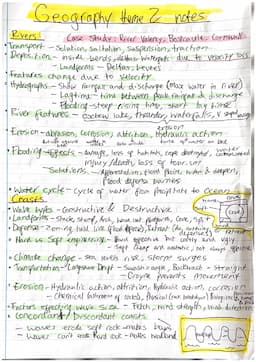 Geography theme 2 notes
Rivers: Case Study: River Valency, Boscastle, Cornwall
Transport - Solution, saltation, suspension, traction.
Deposition - inside bends, due to velocity loss
- Landforms - Deltas, levees
Features change due to velocity
Hydrographs - Show rainfall and discharge (Max water in River)
- Lagtime - time between peak rainfall & discharge
- Flooding - steep rising limb, short lag time
River features - oxbow lake, meander, waterfalls, V shaped
Erosion - abrasion, corrosion, attrition, Hydraulic action
Flooding effects - damage, loss of habitats, crops destroyed, water contaminated
injury/death, loss of tourism
Solutions - Afforestation, flood plains, widen & deepen,
flood defence barriers
Water cycle - Cycle of water from precipitate to ocean
Coasts
Wave types - Constructive & Destructive
Landforms - Stack, stump, arch, wave cut platform, cave,
Defense - Zoning
Hard vs Soft engineering - Hard
Climate change - sea levels rise, storm surges
Transportation - Longshore Drift - Swash = angle, Backwash = straight
- Groyne prevents movement
Erosion - Hydraulic action, attrition, hydraulic action, corrosion
Factors affecting wave size - Fetch, wind strength, wind direction
Concordant/Discordant coasts
- waves erode soft rock = makes bays
- waves can't erode Hard rock = makes headland